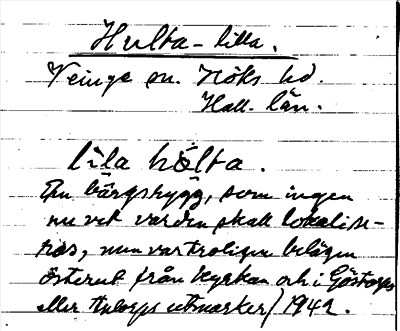 Hulta-lilla.
Veinge sn. Höks hd.
Hall. län.
lila hólta.
En bärgsrygg, som ingen
nu vet var den skall lokalise-
ras, men var troligen belägen
österut från kyrkan och i Göstorps
eller utmarker/ 1942.